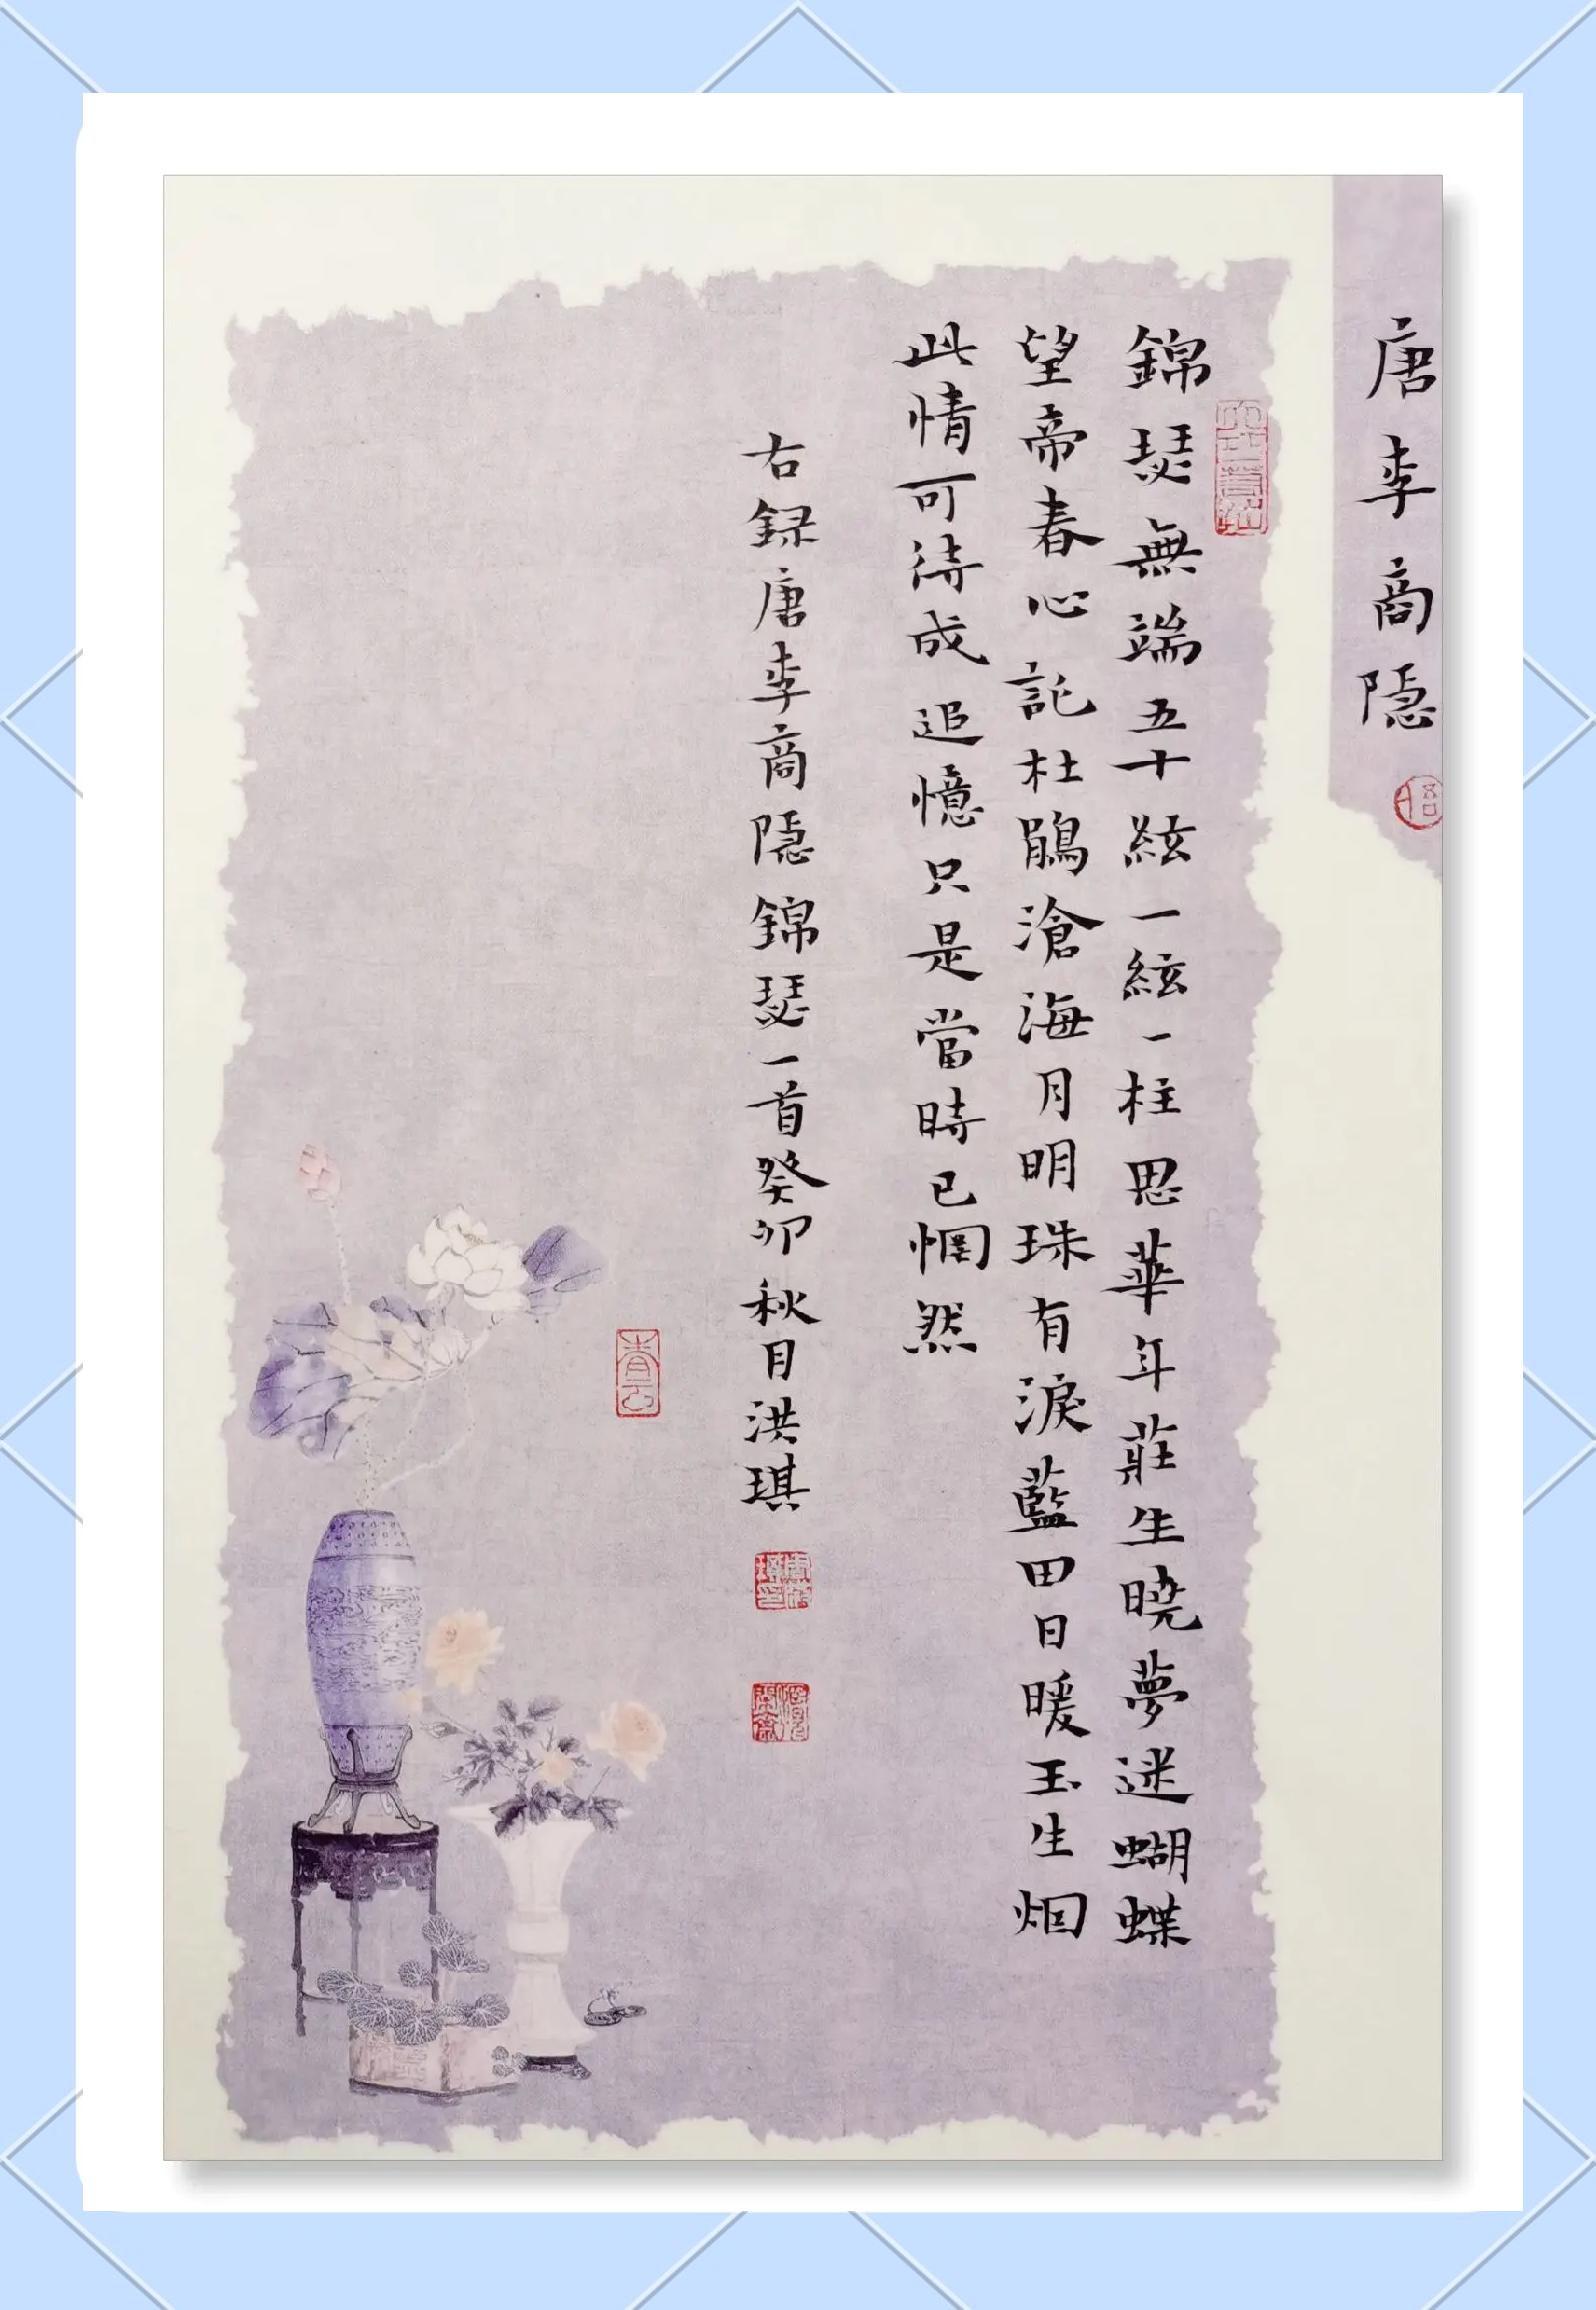 唐李商隱
錦瑟無端五十絃一絃一柱思華年莊生曉夢迷蝴蝶
望帝春心託杜鵑滄海月明珠有淚藍田日暖玉生烟
此情可待成追憶只是當時已惘然
右録唐李商隱錦瑟一首癸卯秋月洪琪